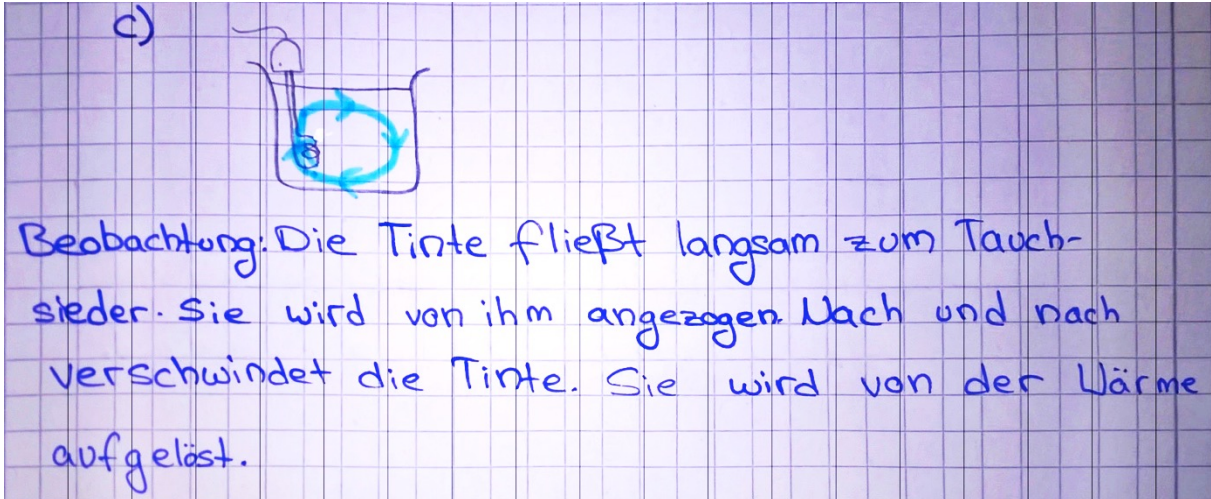 c)
Beobachtung: Die Tinte fließt langsam zum Tauch-
sieder. Sie wird von ihm angezogen. Nach und nach
verschwindet die Tinte. Sie wird von der Wärme
aufgelöst.